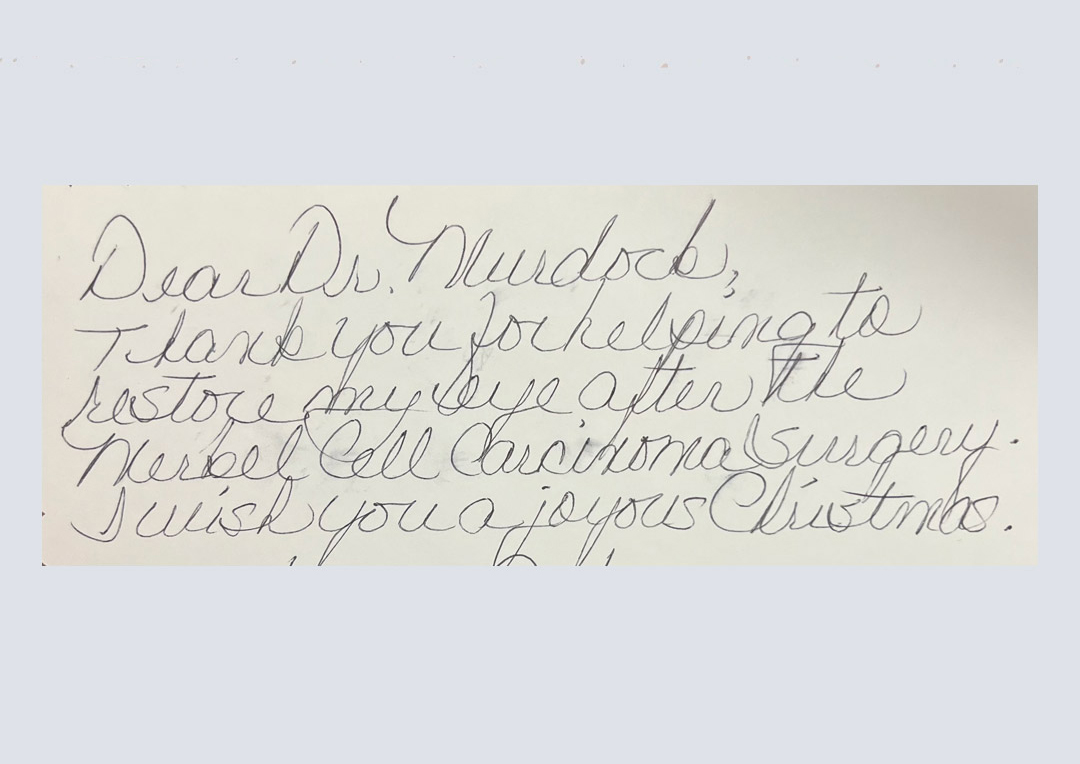 Dear Dr. Murdock,
Thank you for helping to
restore my eye after the
Merkel Cell Carcinoma Surgery.
I wish you a joyous Christmas.